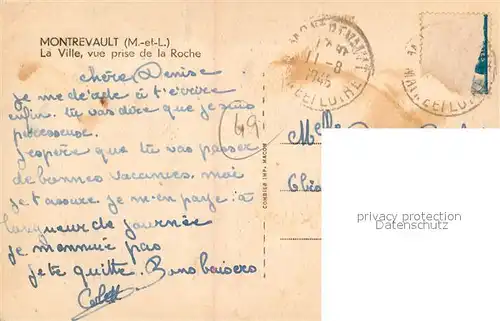 MONTREVAULT (M.-et-L.)
La Ville, vue prise de la Roche
chère Denise
je me décide à t'écrire
enfin. tu vas dire que je suis
paresseuse.
j'espère que tu vas passer
de bonnes vacances. moi
je t'assure je m'en paye à
longueur de journée
je m'ennuie pas
je te quitte. Bons baisers
49
Melle
11-8
1945
COMBIER IMP. MACON
privacy protection
Datenschutz